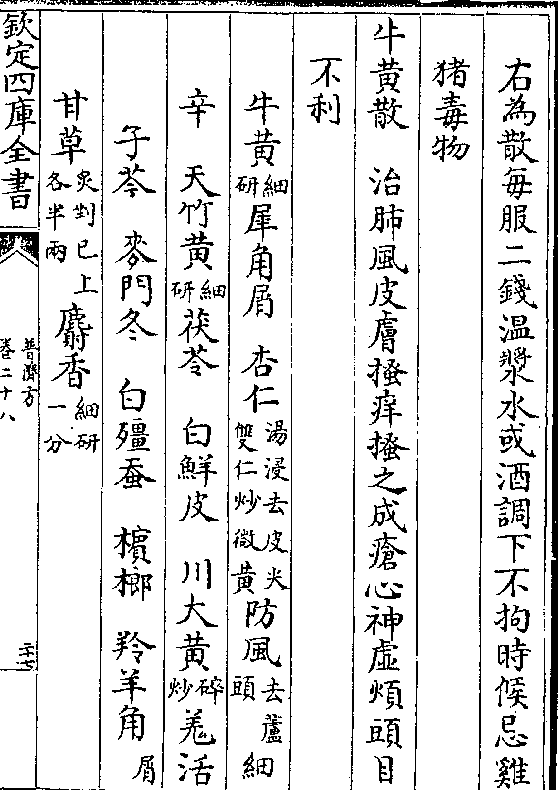 右為散每服二錢温漿水或酒調下不拘時候忌雞
猪毒物
牛黄散　治肺風皮膚搔痒搔之成瘡心神虚煩頭目
不利
牛黄細研犀角屑　杏仁湯浸去皮尖雙仁炒微黄防風去蘆頭　細
辛　天竹黄細研茯苓　白鮮皮　川大黄碎炒羗活
子芩　麥門冬　白殭蚕　檳榔　羚羊角屑
甘草炙剉已上各半兩麝香細研一分
欽定四庫全書
普濟方
卷二十八
二十七